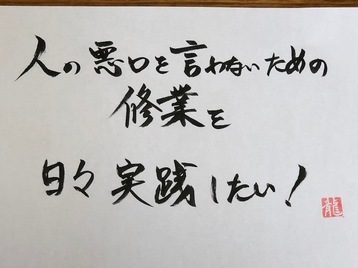 人の悪口を言わないための
修業を
日々実践したい!